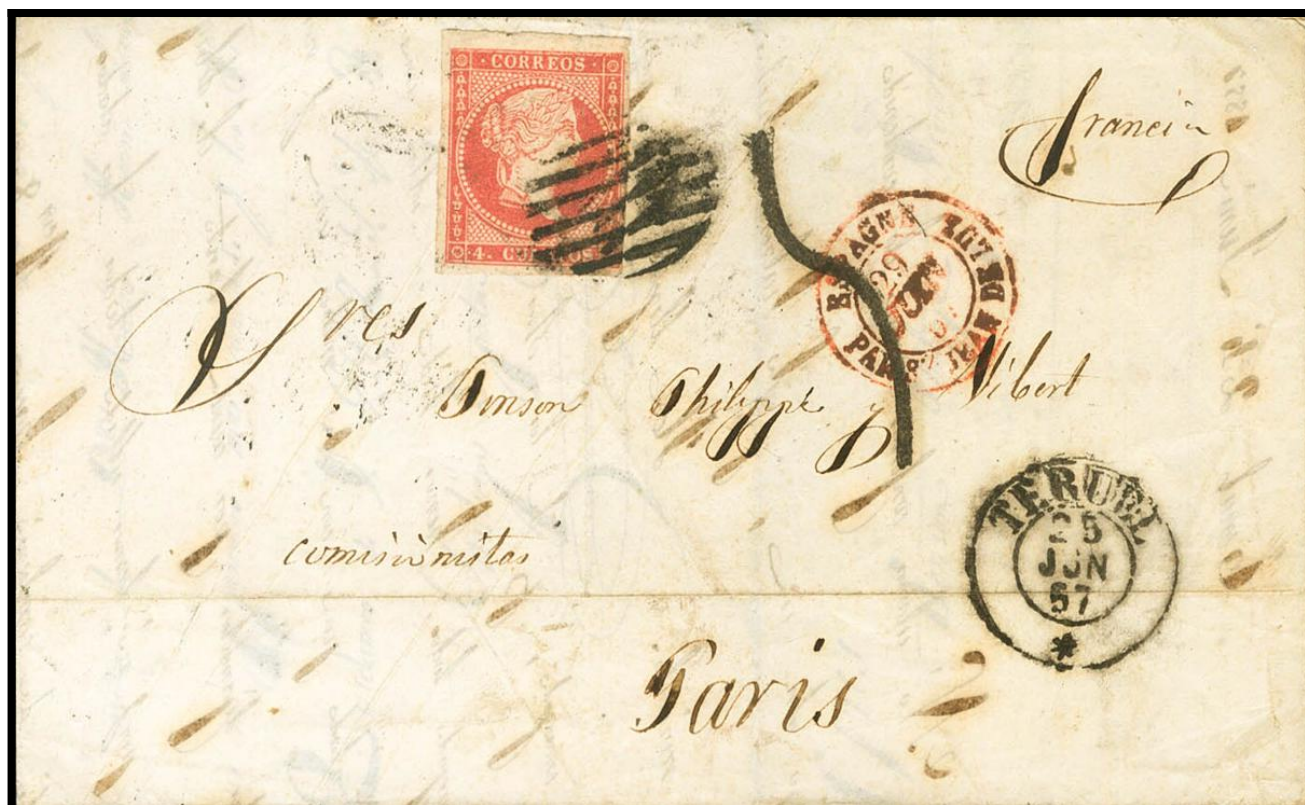 CORREOS
4. CUARTOS
Francia
ESPAGNE
29
JUIN
57
ST JEAN DE LUZ
PARIS
5
Sres
Pinson Philippe y Vibert
comisionistas
TERUEL
25
JUN
57
*
Paris